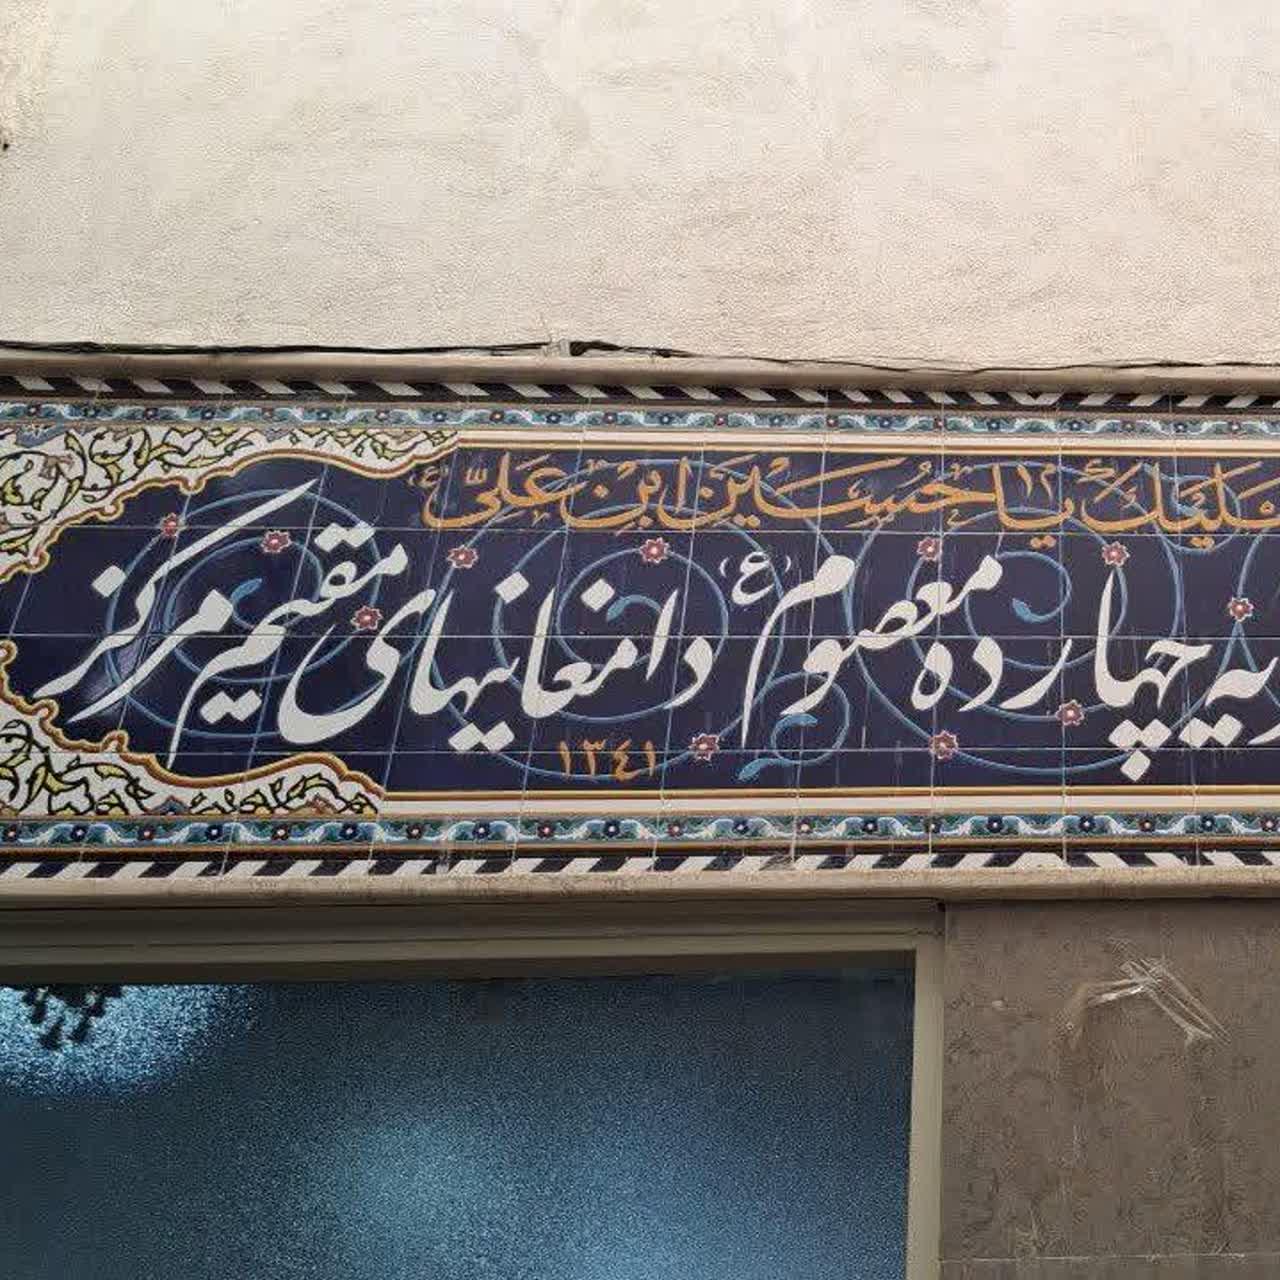 علیک یا حسین ابن علی (ع)
چهارده معصوم (ع) دامغانیهای مقیم مرکز
۱۳۴۱